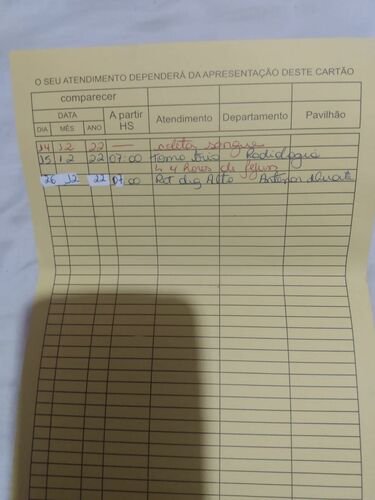 O SEU ATENDIMENTO DEPENDERÁ DA APRESENTAÇÃO DESTE CARTÃO
comparecer
DATA
DIA MÊS ANO A partir HS Atendimento Departamento Pavilhão
14 12 22 — coleta sangue
15 12 22 07:00 Tomo Radiologia
4 horas de jejum
26 12 22 07:00 Ret Alto